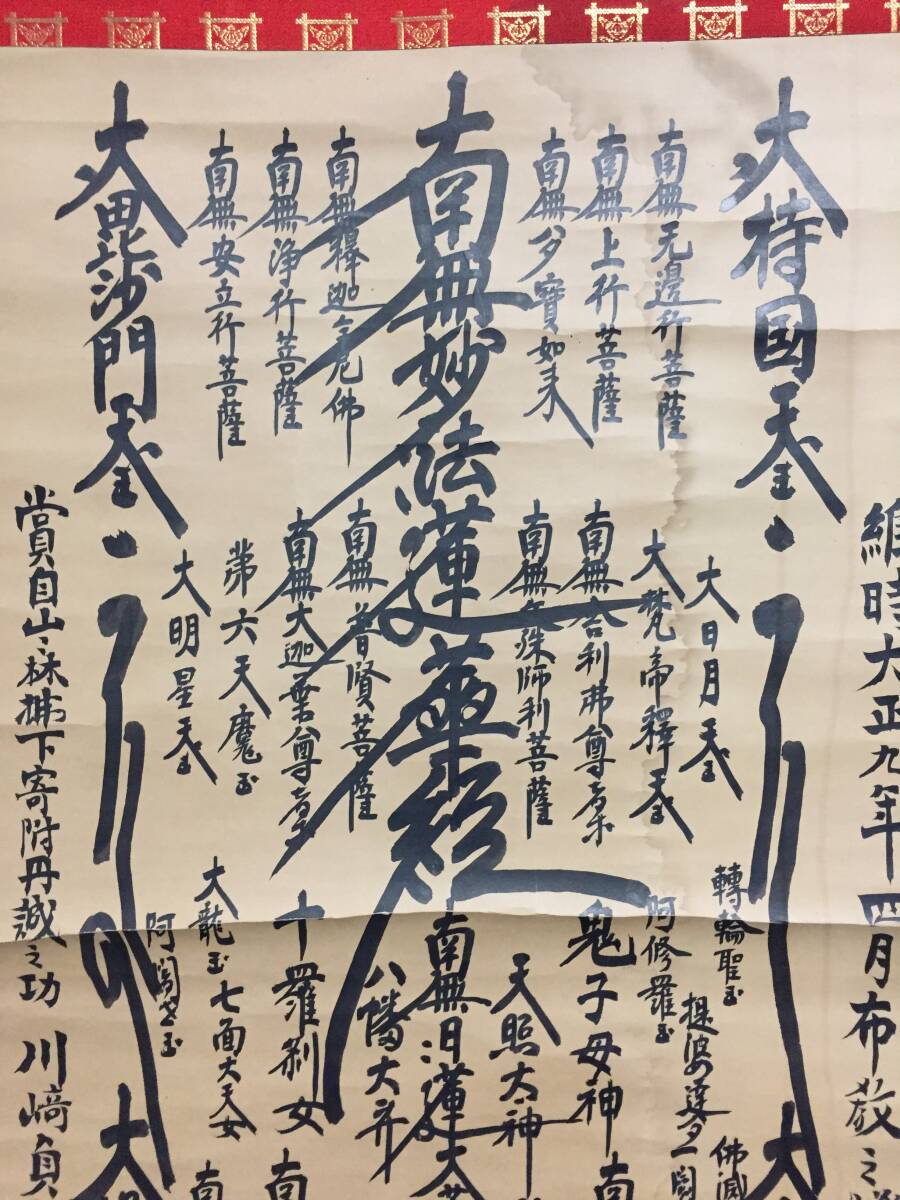 維時大正九年四月布教之
大持国天王
大日月天王
轉輪聖王
佛滅
大
南無无邊行菩薩
大梵帝釋天王
阿修羅王
提婆達多
南無上行菩薩
南無舎利弗尊者
鬼子母神
南
南無多寶如来
南無文殊師利菩薩
天照太神
南無妙法蓮華経
南無日蓮大菩
八幡大菩
南無釋迦牟尼佛
南無普賢菩薩
南無浄行菩薩
南無大迦葉尊者
十羅刹女
南
南無安立行菩薩
第六天魔王
大龍王
七面大天女
南
大明星天王
阿闍世王
大毘沙門天王
大
賞自山之林拂下寄附丹誠之功 川﨑負